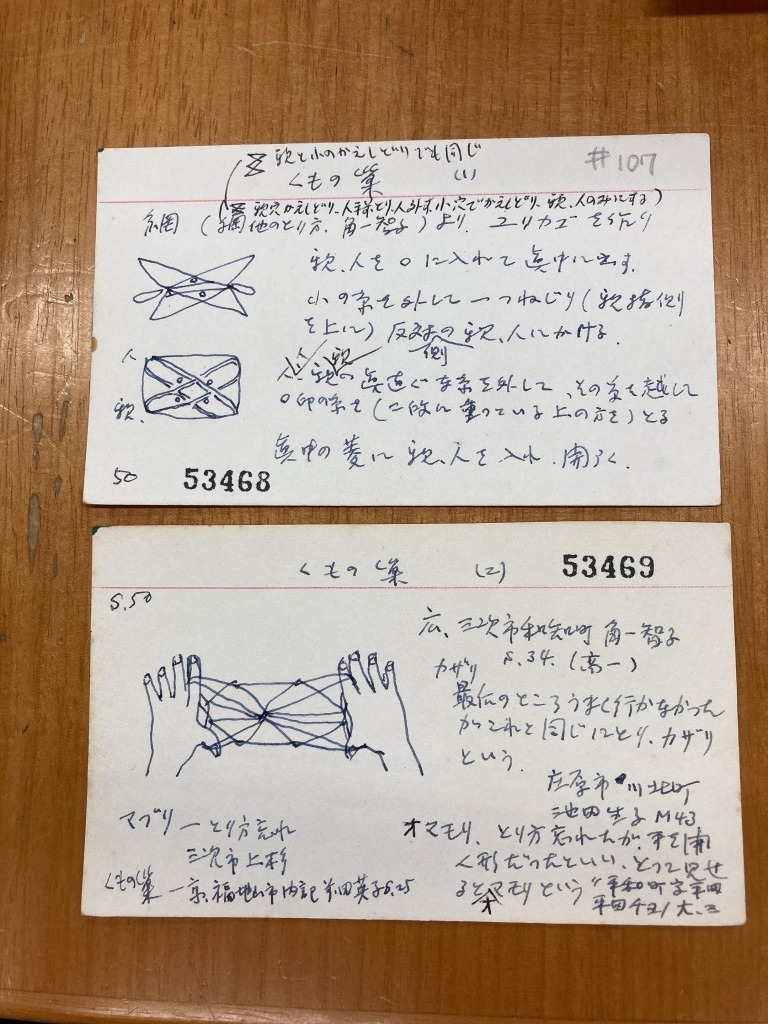 親と小のかえしどりでも同じ
#107
くもの巣 (1)
親穴かえしどり、人 とり、人外す、小穴でかえしどり、親、人のみにする)
網 (他のとり方、角一智子) より、ユリカゴを作り
親、人を○に入れて真中に出す.
小の糸を外して一つねじり(親指側
を上に) 反対の親、人にかける.
側
人、親の真直ぐな糸を外して、その糸を越して
○印の糸を(二段に重っている上の方を)とる
真中の菱に親、人を入れ、開らく.
人
親.
50
53468
くもの巣 (二)
53469
S.50
広、三次市和知町 角一智子
カザリ S.34. (高一)
最后のところうまく行かなかった
がこれと同じにとり、カザリ
という.
庄原市 川北町
池田生子 M43
オマモリ、とり方忘れたが、手を開
く形だったといい、とって見せ
るとオマモリという
平和町字平田
平田チヨノ 大.三
マブリ ー とり方忘れ
三次市上杉
くもの巣 ー 京、福地山市内記 英子 S.25